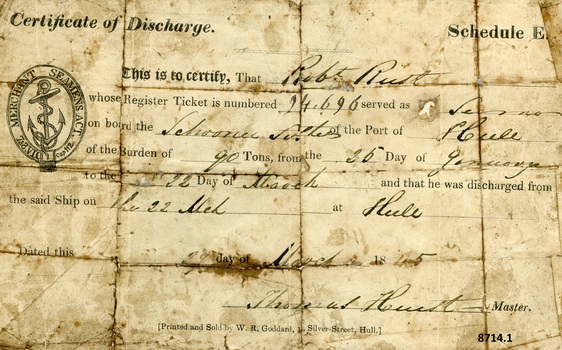 Certificate of Discharge. Schedule E.
MERCHANT SEAMENS ACT.
This is to certify, That Robt. Rust
whose Register Ticket is numbered 94.696 served as
on board the Schooner of the Port of Hull
of the Burden of 90 Tons, from the 25 Day of January
to the 22 Day of March and that he was discharged from
the said Ship on the 22 Mch at Hull
Dated this day of March 1845
Thomas Hurst Master.
[Printed and Sold by W. R. Goddard, Silver-Street, Hull.]
8714.1